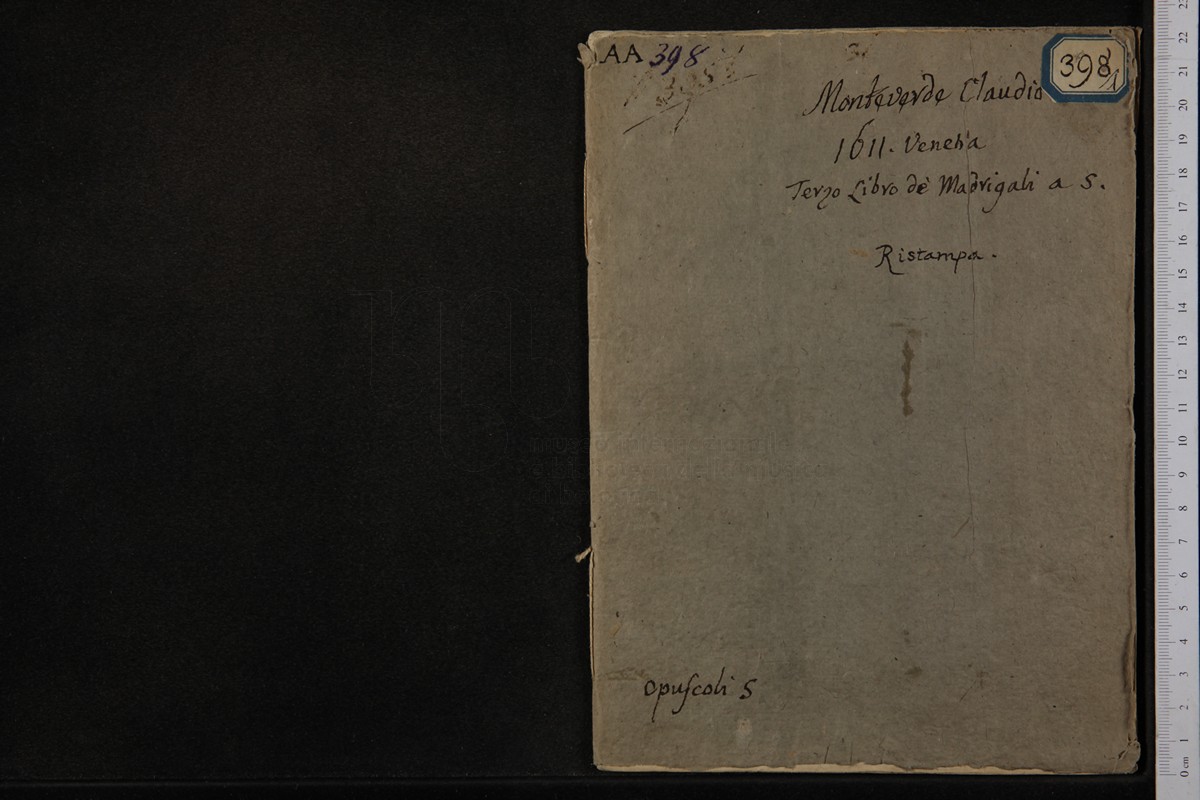 AA 398
398
Monteverde Claudio
1611. Venetia
Terzo Libro de' Madrigali a 5.
Ristampa.
opuſcoli 5
23
22
21
20
19
18
17
16
15
14
13
12
11
10
9
8
7
6
5
4
3
2
1
0 cm